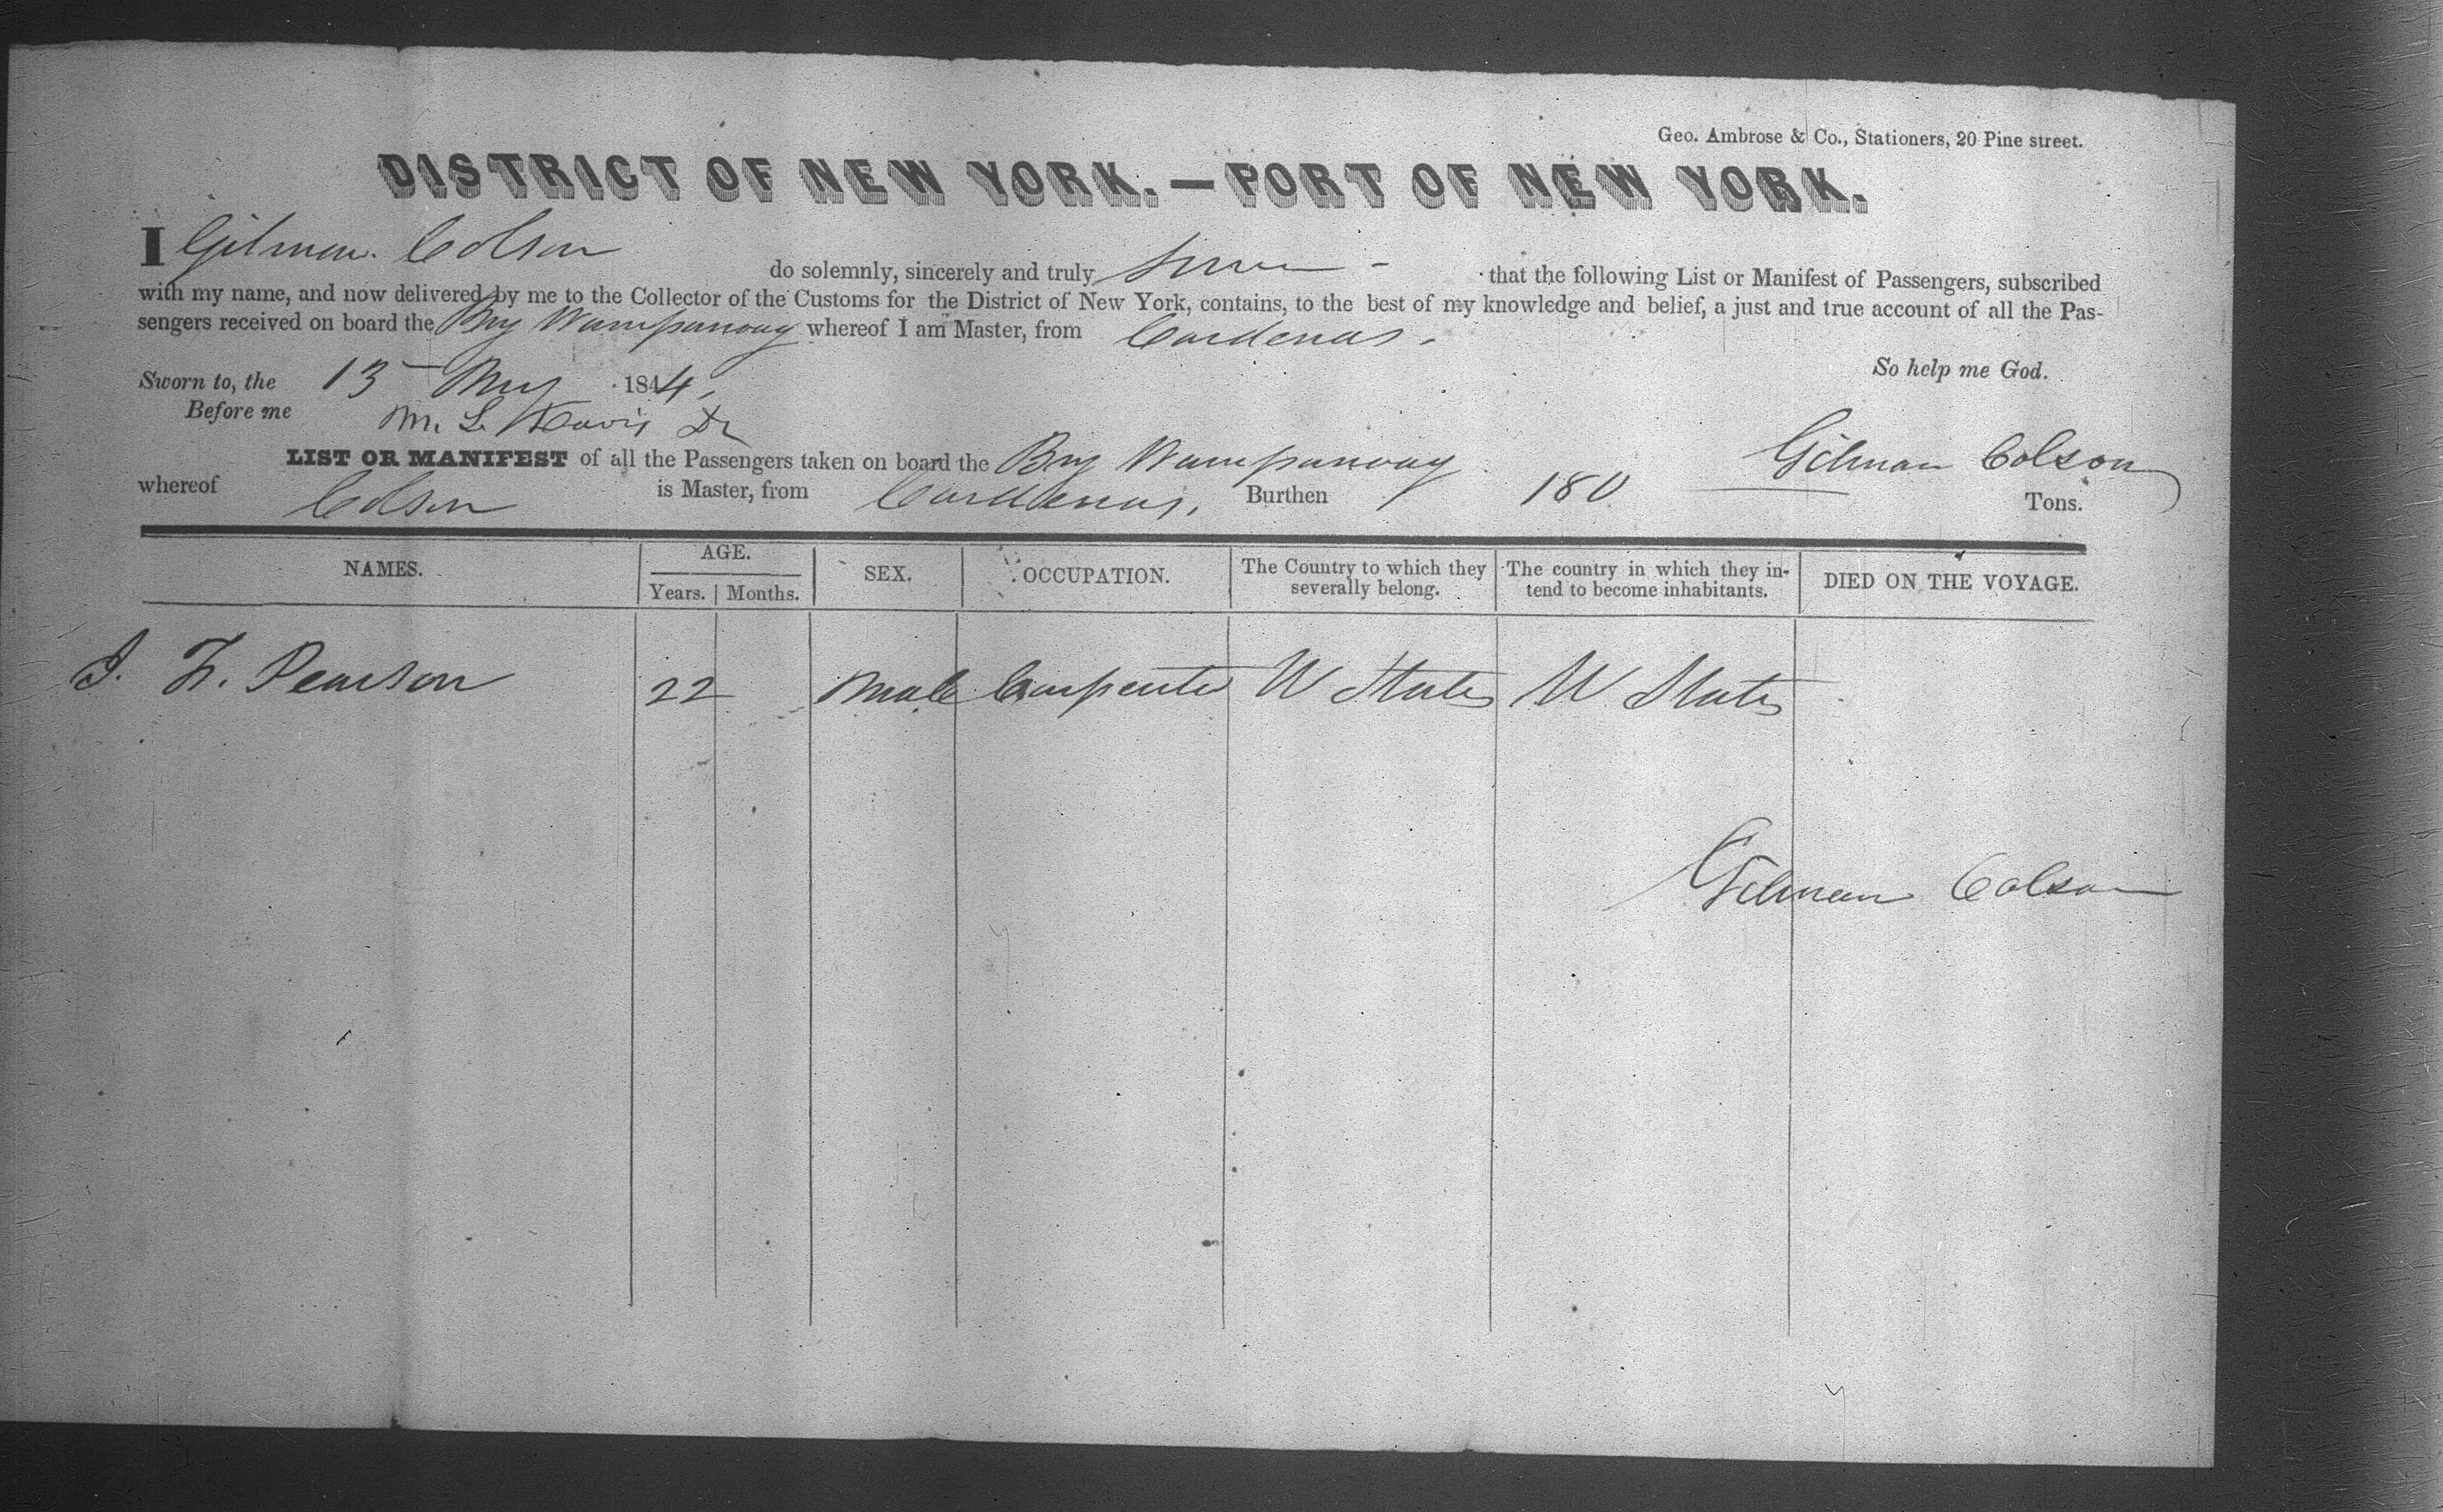 Geo. Ambrose & Co., Stationers, 20 Pine street.
DISTRICT OF NEW YORK.—PORT OF NEW YORK.
I Gilman Colson do solemnly, sincerely and truly swear - that the following List or Manifest of Passengers, subscribed
with my name, and now delivered by me to the Collector of the Customs for the District of New York, contains, to the best of my knowledge and belief, a just and true account of all the Pas-
sengers received on board the Brig Wampanoag whereof I am Master, from Cardenas.
So help me God.
Sworn to, the 13 May 1844,
Before me M. L. Davis
Gilman Colson
LIST OR MANIFEST of all the Passengers taken on board the Brig Wampanoag
whereof Colson is Master, from Cardenas, Burthen 180 Tons.
NAMES. AGE. SEX. OCCUPATION. The Country to which they severally belong. The country in which they in-tend to become inhabitants. DIED ON THE VOYAGE.
Years. Months.
J. F. Pearson 22 Male Carpenter U States U States
Gilman Colson